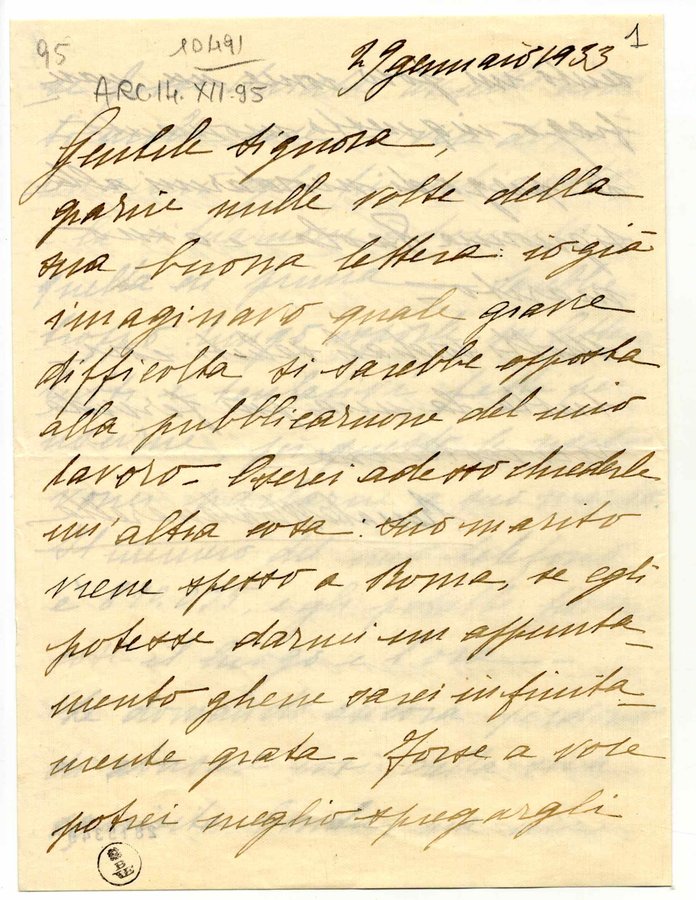 95
10491
1
ARC14.XII.95
29 gennaio 1933
Gentile signora,
grazie mille volte della
sua buona lettera: io già
imaginavo quale grave
difficoltà si sarebbe opposta
alla pubblicazione del mio
lavoro - Oserei adesso chiederle
un' altra cosa: suo marito
viene spesso a Roma, se egli
potesse darmi un appunta_
mento gliene sarei infinita_
mente grata - Forse a voce
potrei meglio spiegargli